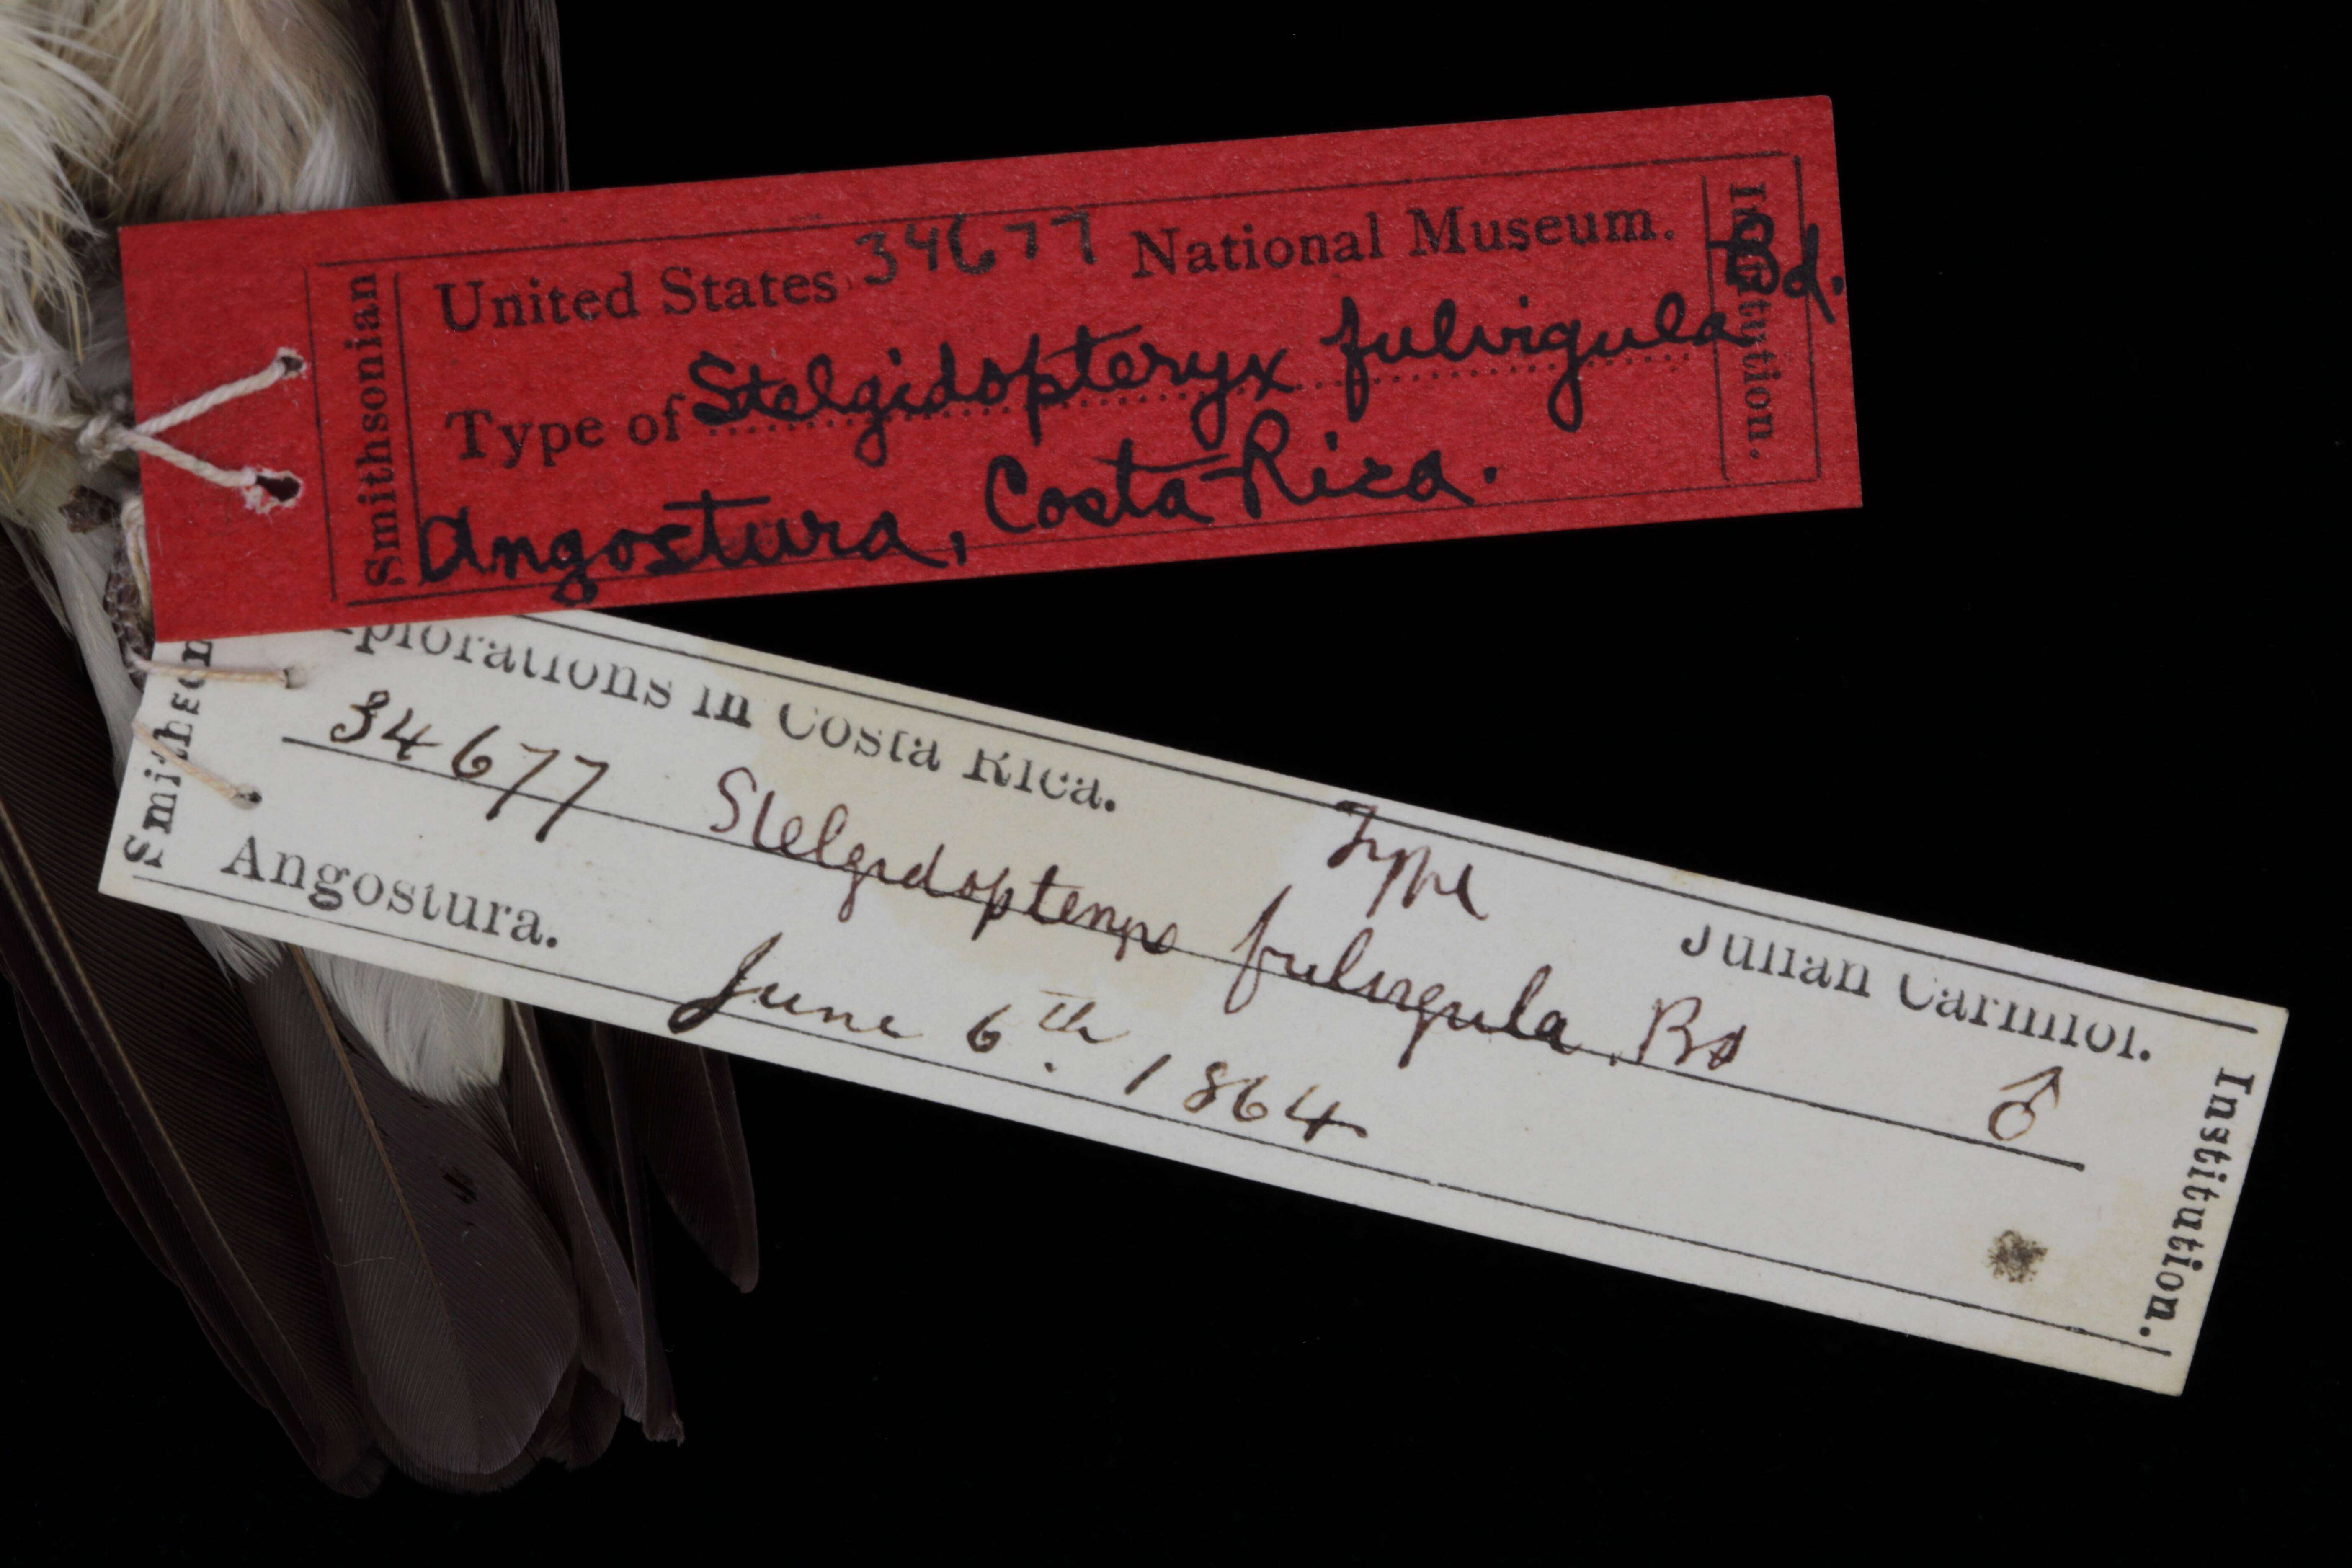 Smithsonian
United States 34677 National Museum.
Type of Stelgidopteryx fulvigula Bd.
Angostura, Costa Rica.
Institution.
Smithson
plorations in Costa Rica.
Type
Julian Carmiol.
34677 Stelgidopteryx fulvigula. Bd ♂
Angostura.
June 6th. 1864
Institution.